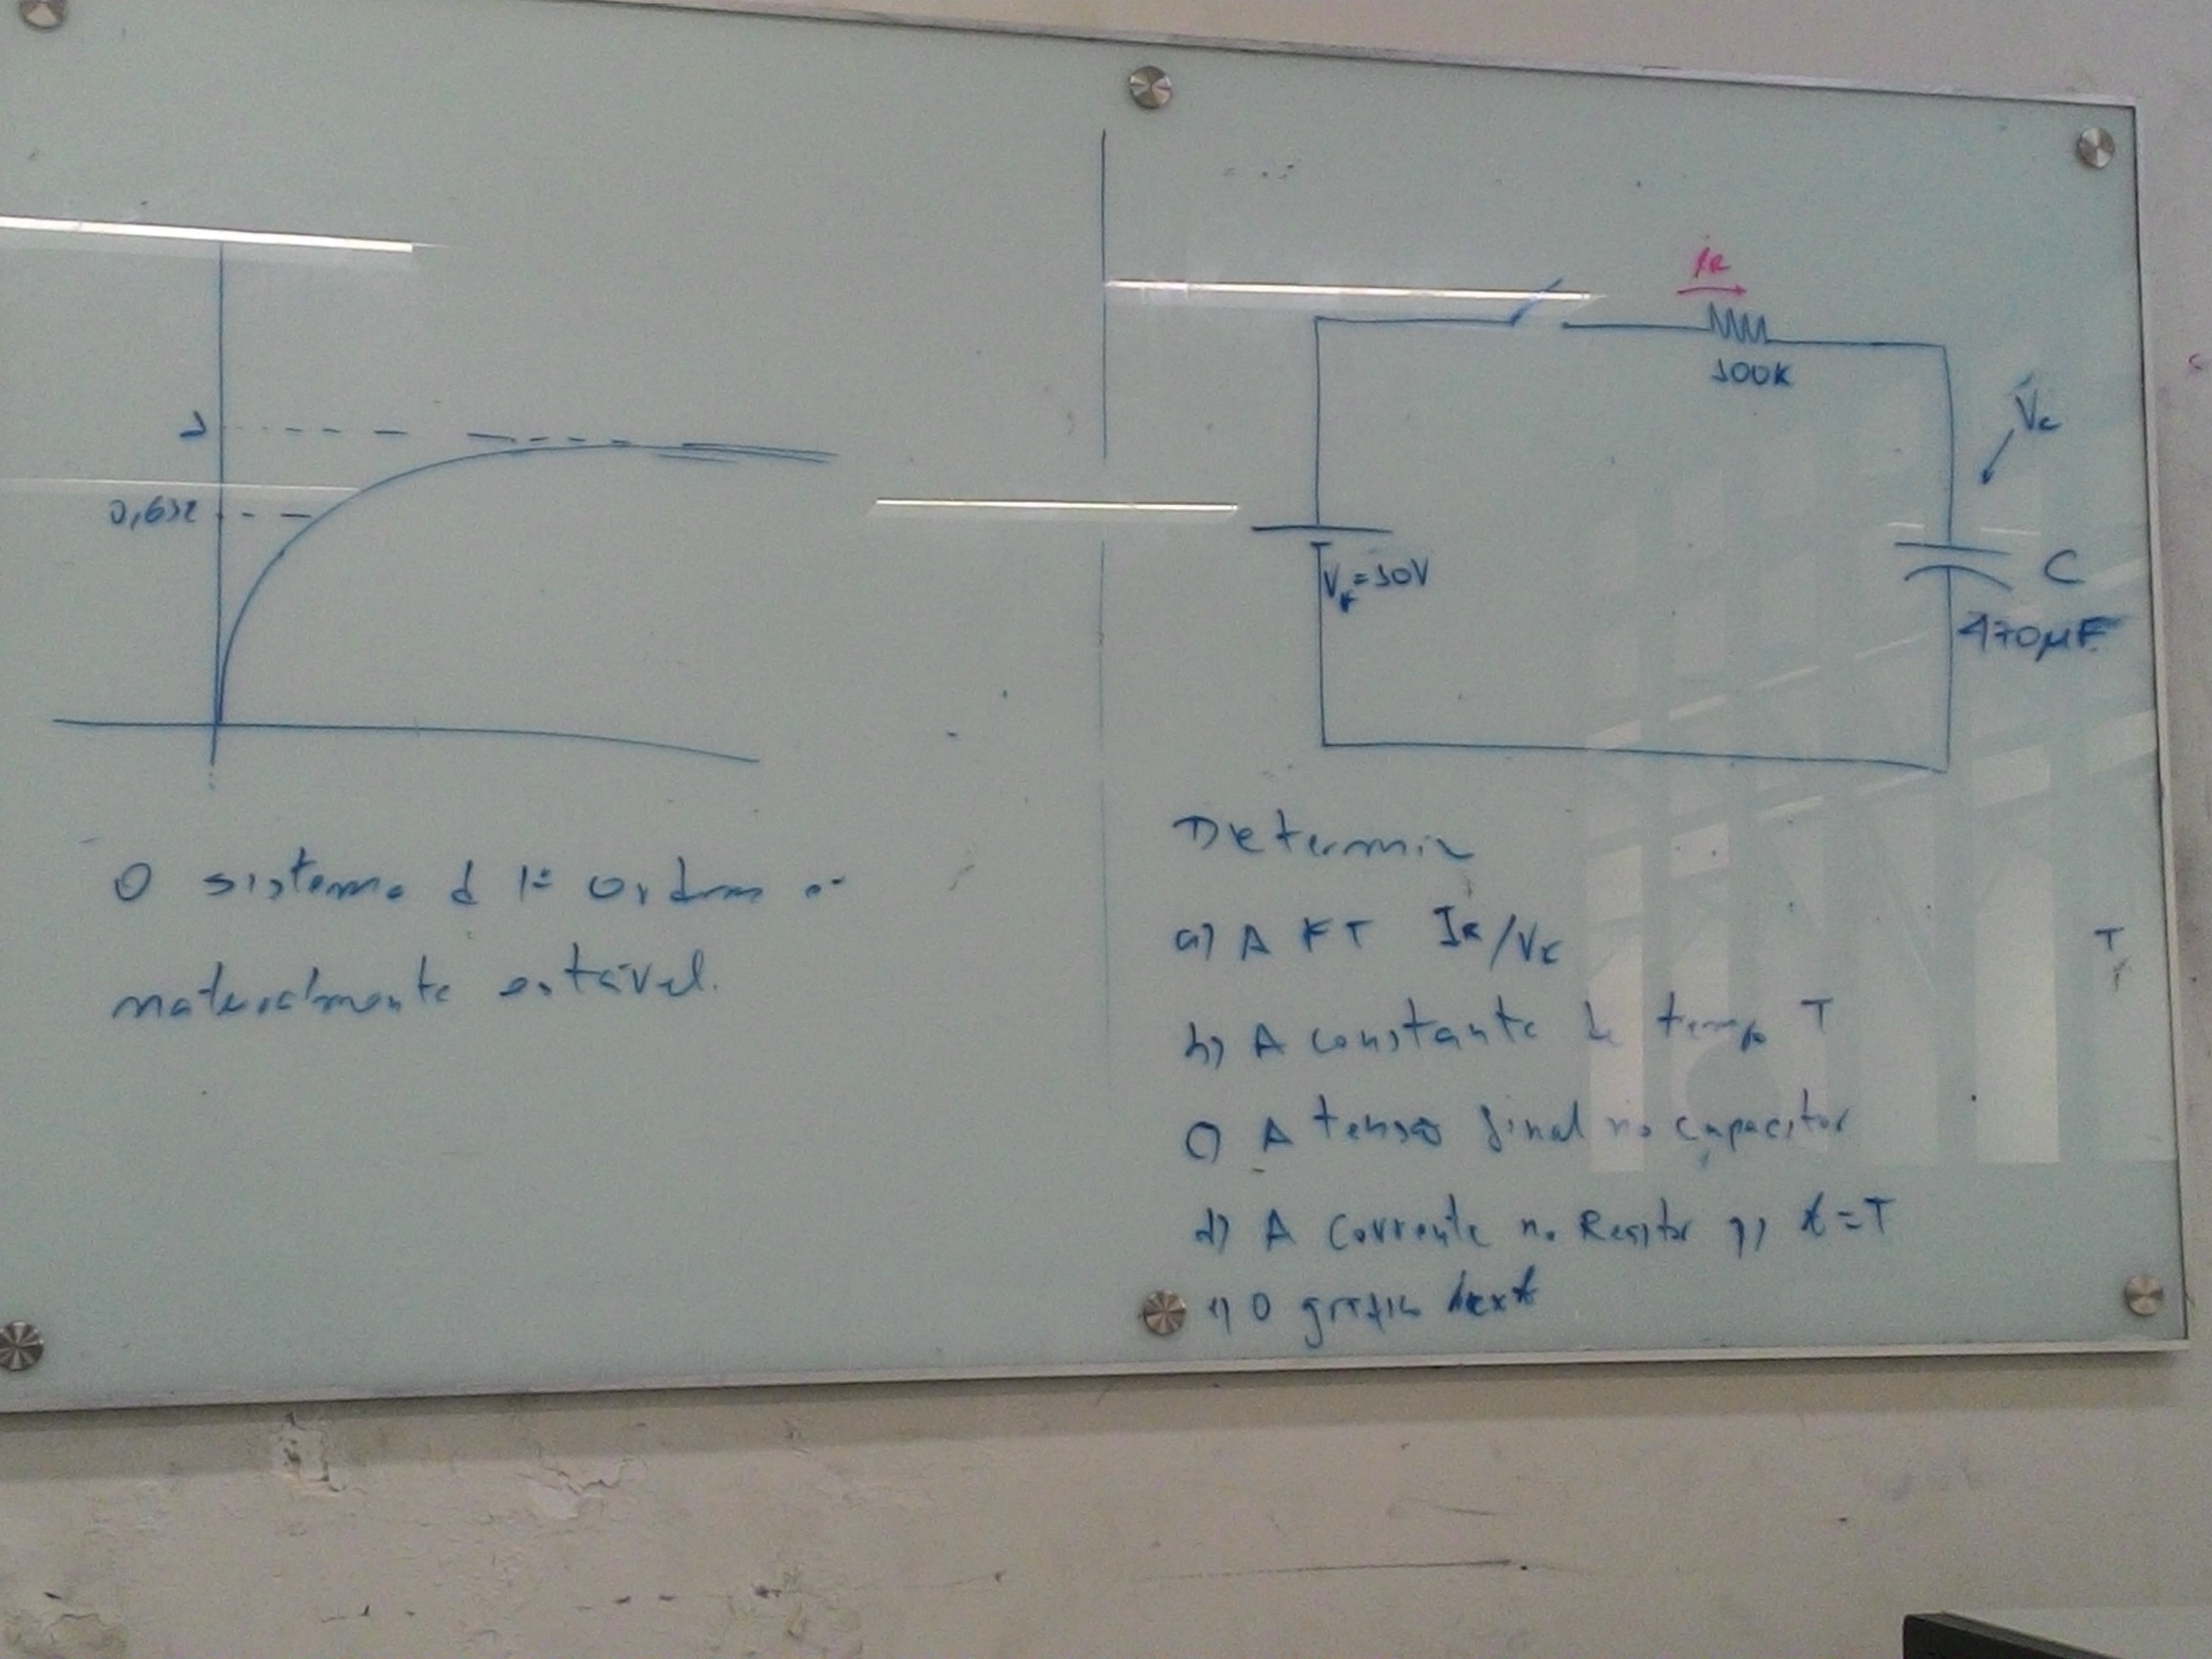 1
0,632
O sistema d 1ª ordem é
naturalmente estável.
iR
100K
Vc
VF=10V
C
470µF
Determin
a) A FT IR/VF
T
b) A constante de tempo T
c) A tensão final no capacitor
d) A corrente no Resistor p/ t=T
e) O gráfico